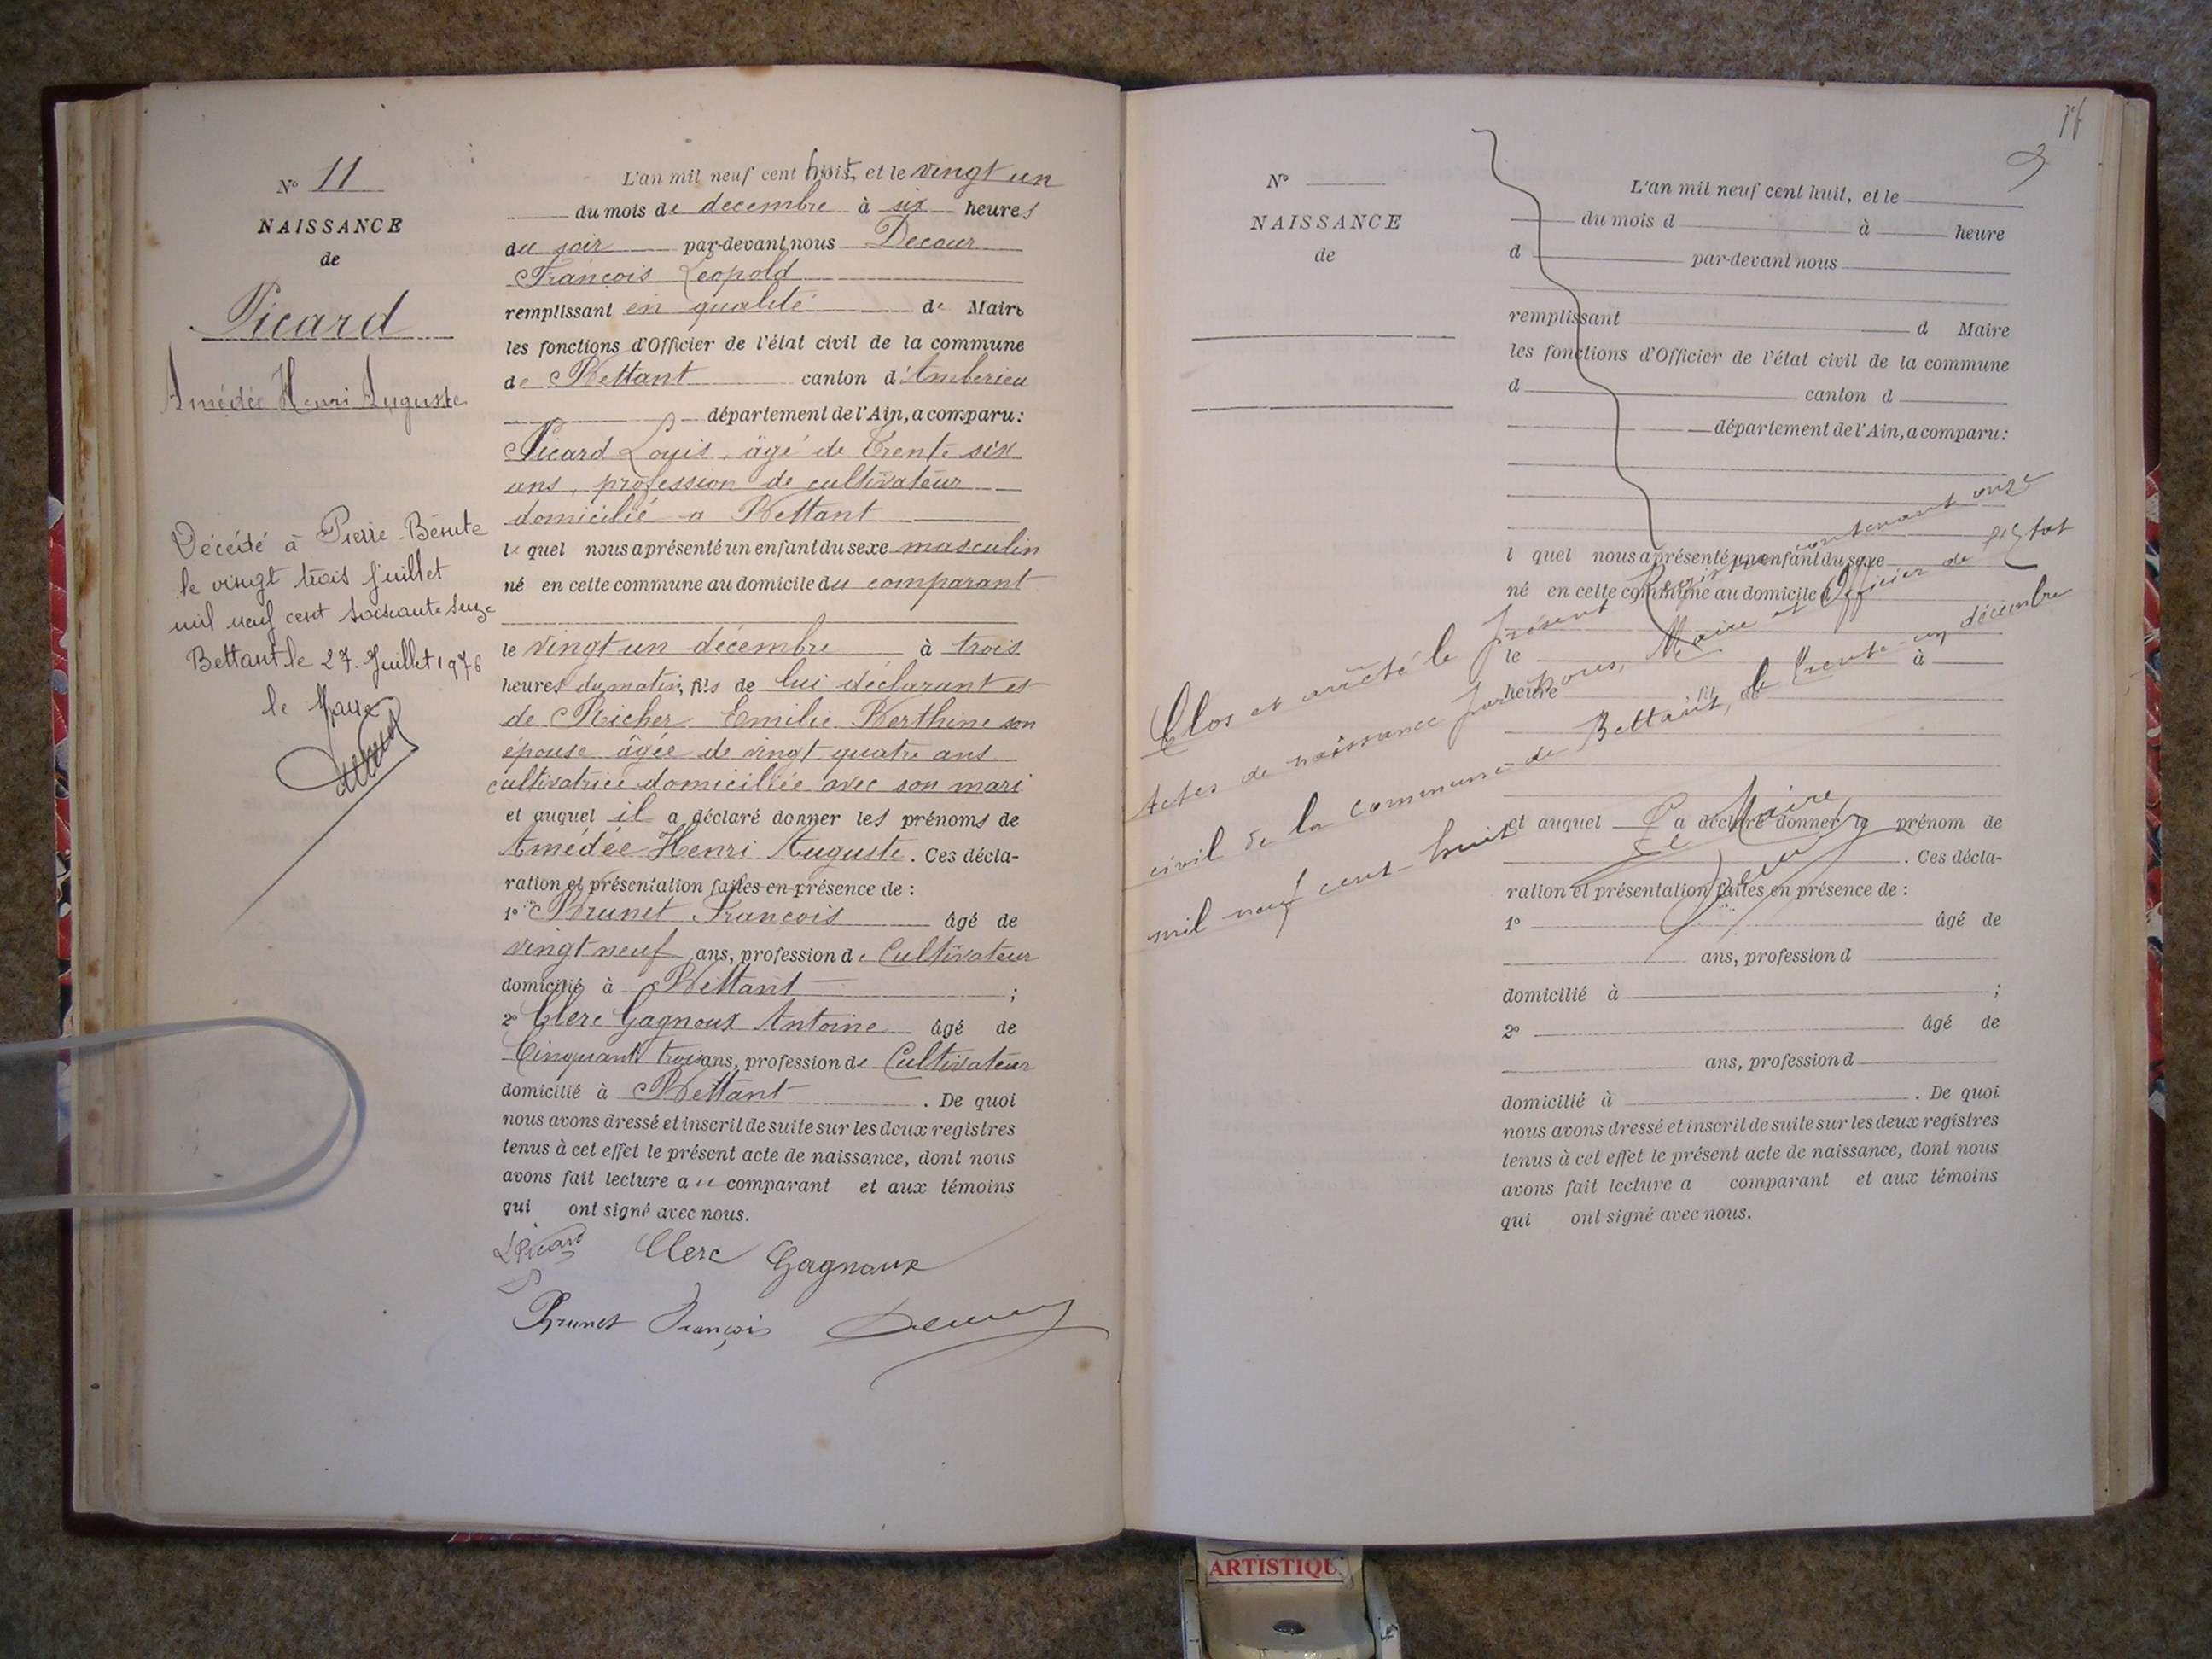 N° 11
NAISSANCE
de
Picard
Amédée Henri Auguste
Décédé à Pierre-Bénite
le vingt trois juillet
mil neuf cent soixante seize
Bettant le 27 Juillet 1976
le Maire
L'an mil neuf cent huit, et le vingt un
du mois de decembre à six heures
du soir par-devant nous Decour
François Léopold
remplissant en qualité de Maire
les fonctions d'Officier de l'état civil de la commune
de Bettant canton d'Amberieu
département de l'Ain, a comparu:
Picard Louis, âgé de trente six
ans, profession de cultivateur
domicilié a Bettant
le quel nous a présenté un enfant du sexe masculin
né en cette commune au domicile du comparant
le vingt un décembre à trois
heures du matin, fils de lui déclarant et
de Richer Emilie Berthine son
épouse âgée de vingt quatre ans
cultivatrice domiciliée avec son mari
et auquel il a déclaré donner les prénoms de
Amédée Henri Auguste. Ces décla-
ration et présentation faites en présence de :
1° Brunet François âgé de
vingt neuf ans, profession de Cultivateur
domicilié à Bettant ;
2° Clerc Gagnoux Antoine âgé de
Cinquante trois ans, profession de Cultivateur
domicilié à Bettant . De quoi
nous avons dressé et inscrit de suite sur les deux registres
tenus à cet effet le présent acte de naissance, dont nous
avons fait lecture au comparant et aux témoins
qui ont signé avec nous.
L Picard Clerc Gagnoux
Brunet François Decour
N°
NAISSANCE
de
L'an mil neuf cent huit, et le
du mois d à heure
d par-devant nous
remplissant d Maire
les fonctions d'Officier de l'état civil de la commune
d canton d
département de l'Ain, a comparu:
l quel nous a présenté un enfant du sexe
né en cette commune au domicile d
le à
heure fil de
et auquel a déclaré donner le prénom de
. Ces décla-
ration et présentation faites en présence de :
1° âgé de
ans, profession d
domicilié à ;
2° âgé de
ans, profession d
domicilié à . De quoi
nous avons dressé et inscrit de suite sur les deux registres
tenus à cet effet le présent acte de naissance, dont nous
avons fait lecture a comparant et aux témoins
qui ont signé avec nous.
Clos et arrêté le présent Registre contenant onze
Actes de naissance par nous, Maire et Officier de l'Etat
civil de la commune de Bettant, le trente-un décembre
mil neuf cent huit
Le Maire
Decour
ARTISTIQU